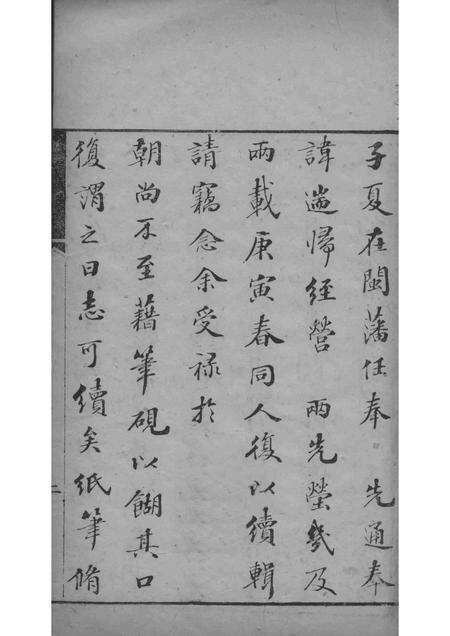 子夏在閩藩任奉 先通奉
諱遄歸經營 兩先塋幾及
兩載庚寅春同人復以續輯
請竊念余受祿於
朝尚不至藉筆硯以餬其口
復謂之曰志可續矣紙筆脩
二